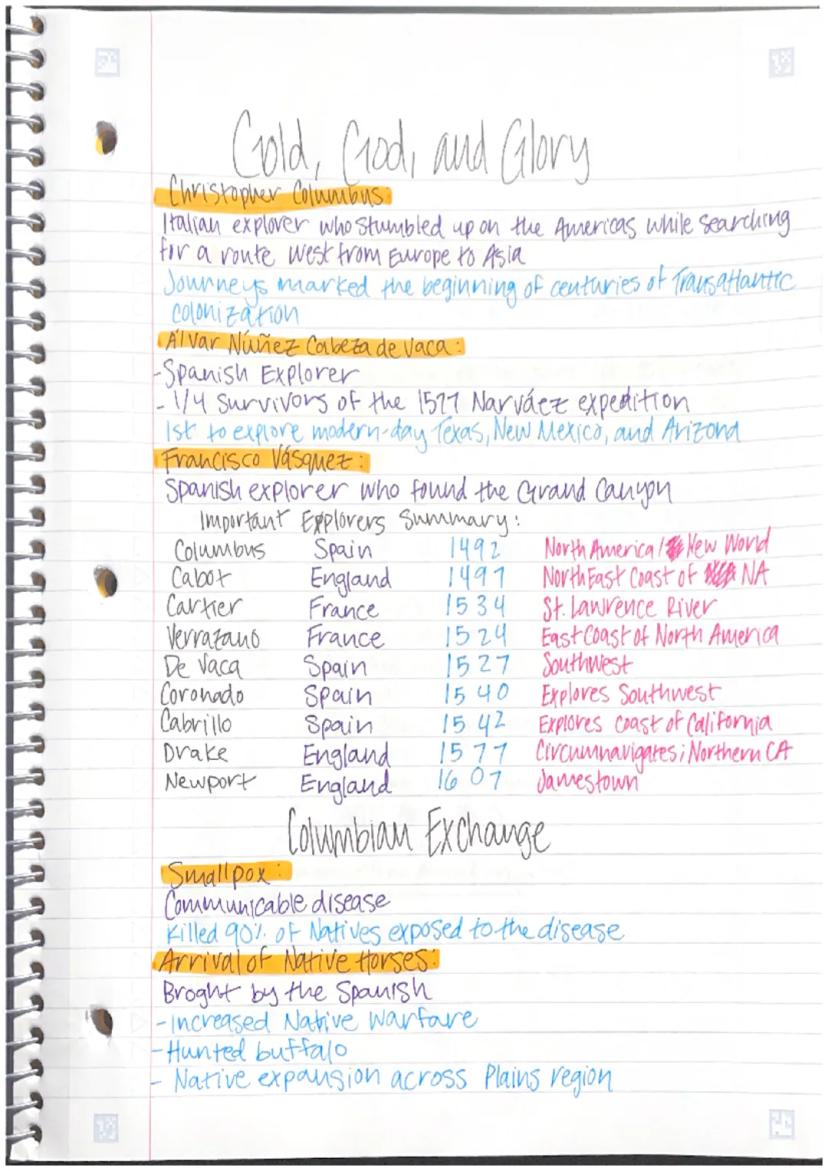 Gold, God, and Glory
Christopher Columbus:
Italian explorer who stumbled upon the Americas while searching
for a route West from Europe to Asia
Journeys marked the beginning of centuries of Transatlantic
colonization
Álvar Núñez Cabeza de Vaca:
-Spanish Explorer
- 1/4 Survivors of the 1577 Narváez expedition
1st to explore modern-day Texas, New Mexico, and Arizona
Francisco Vásquez:
Spanish explorer who found the Grand Canyon
Important Explorers Summary:
Columbus Spain 1492 North America/ New World
Cabot England 1497 NorthEast Coast of NA
Cartier France 1534 St. Lawrence River
Verrazano France 1524 East Coast of North America
De Vaca Spain 1527 Southwest
Coronado Spain 1540 Explores Southwest
Cabrillo Spain 1542 Explores coast of California
Drake England 1577 Circumnavigates; Northern CA
Newport England 1607 Jamestown
Columbian Exchange
Smallpox:
Communicable disease
Killed 90% of Natives exposed to the disease
Arrival of Native Horses:
Broght by the Spanish
-Increased Native Warfare
-Hunted buffalo
- Native expansion across Plains region